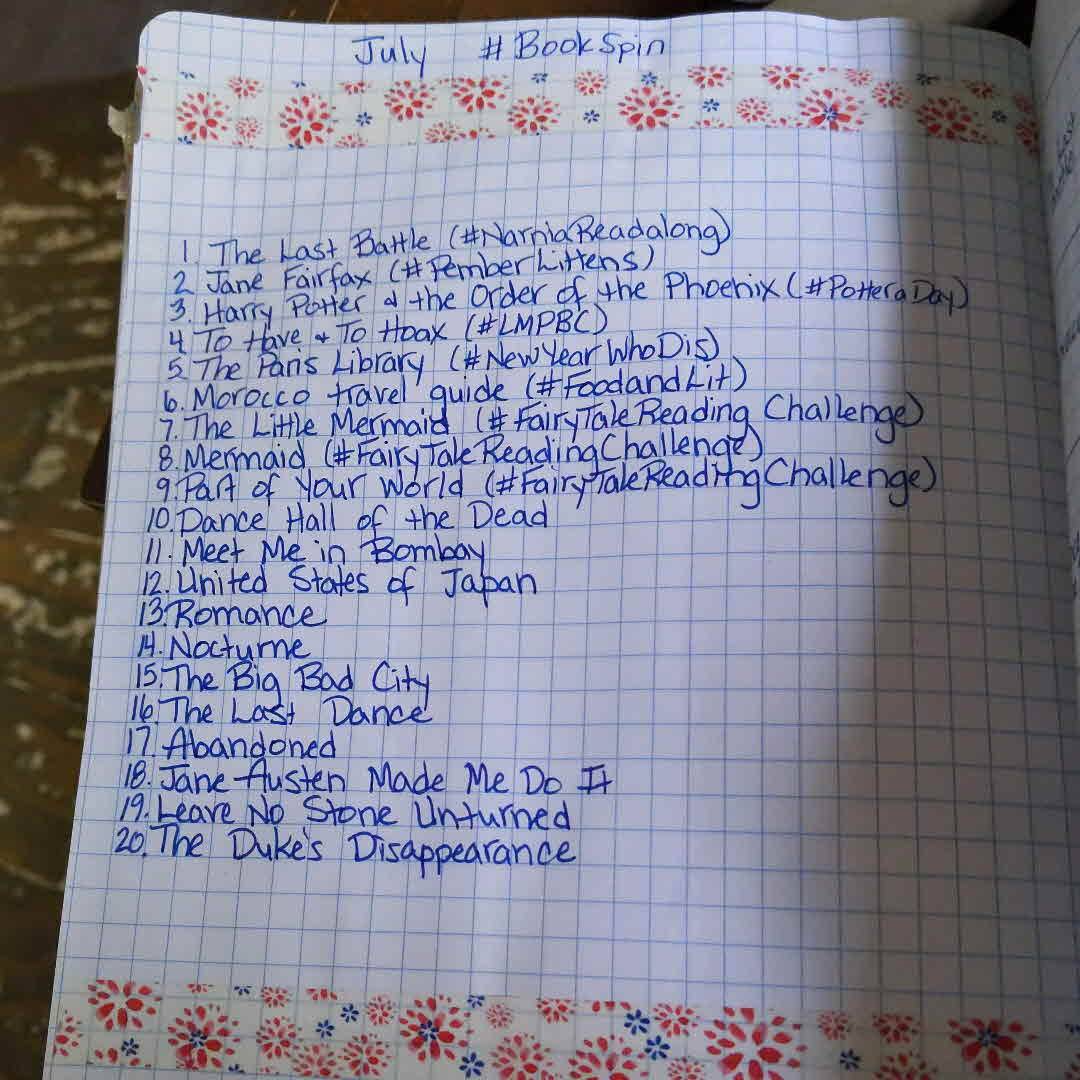 July #BookSpin
1. The Last Battle (#NarniaReadalong)
2. Jane Fairfax (#PemberLittens)
3. Harry Potter & the Order of the Phoenix (#PotteraDay)
4. To Have & To Hoax (#LMPBC)
5. The Paris Library (#NewYearWhoDis)
6. Morocco travel guide (#FoodandLit)
7. The Little Mermaid (#FairyTaleReading Challenge)
8. Mermaid (#FairyTaleReadingChallenge)
9. Part of Your World (#FairyTaleReadingChallenge)
10. Dance Hall of the Dead
11. Meet Me in Bombay
12. United States of Japan
13. Romance
14. Nocturne
15. The Big Bad City
16. The Last Dance
17. Abandoned
18. Jane Austen Made Me Do It
19. Leave No Stone Unturned
20. The Duke's Disappearance